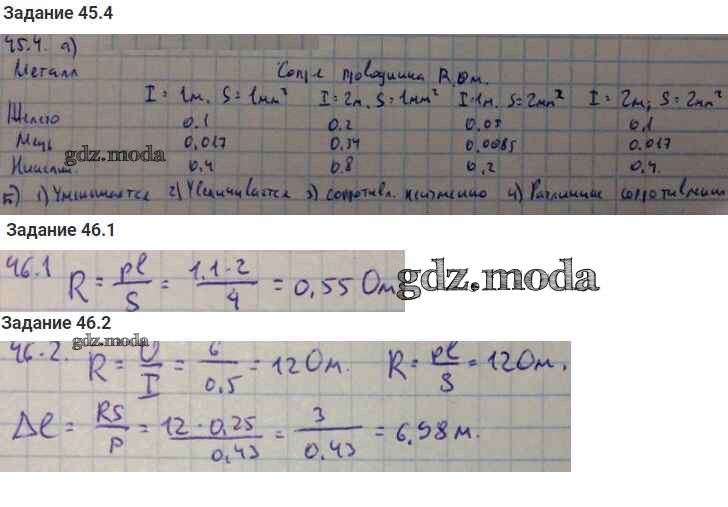 Задание 45.4
45.4. а)
Металл Сопр. проводника R, Ом.
I = 1м. S = 1мм² I = 2м. S = 1мм² I = 1м. S = 2мм² I = 2м; S = 2мм²
Железо 0.1 0.2 0.05 0.1
Медь 0,017 0,34 0,0085 0.017
0,4 0,8 0,2 0,4.
gdz.moda
б) 1) Уменьшается 2) Увеличивается 3) сопротивл. неизменно 4)
Задание 46.1
46.1 R = ρl/S = 1.1·2/4 = 0,55 Ом
gdz.moda
Задание 46.2
gdz.moda
46.2. R = U/I = 6/0.5 = 12 Ом. R = ρl/S = 12 Ом.
Δl = RS/ρ = 12·0,25/0,43 = 3/0,43 = 6,98 м.